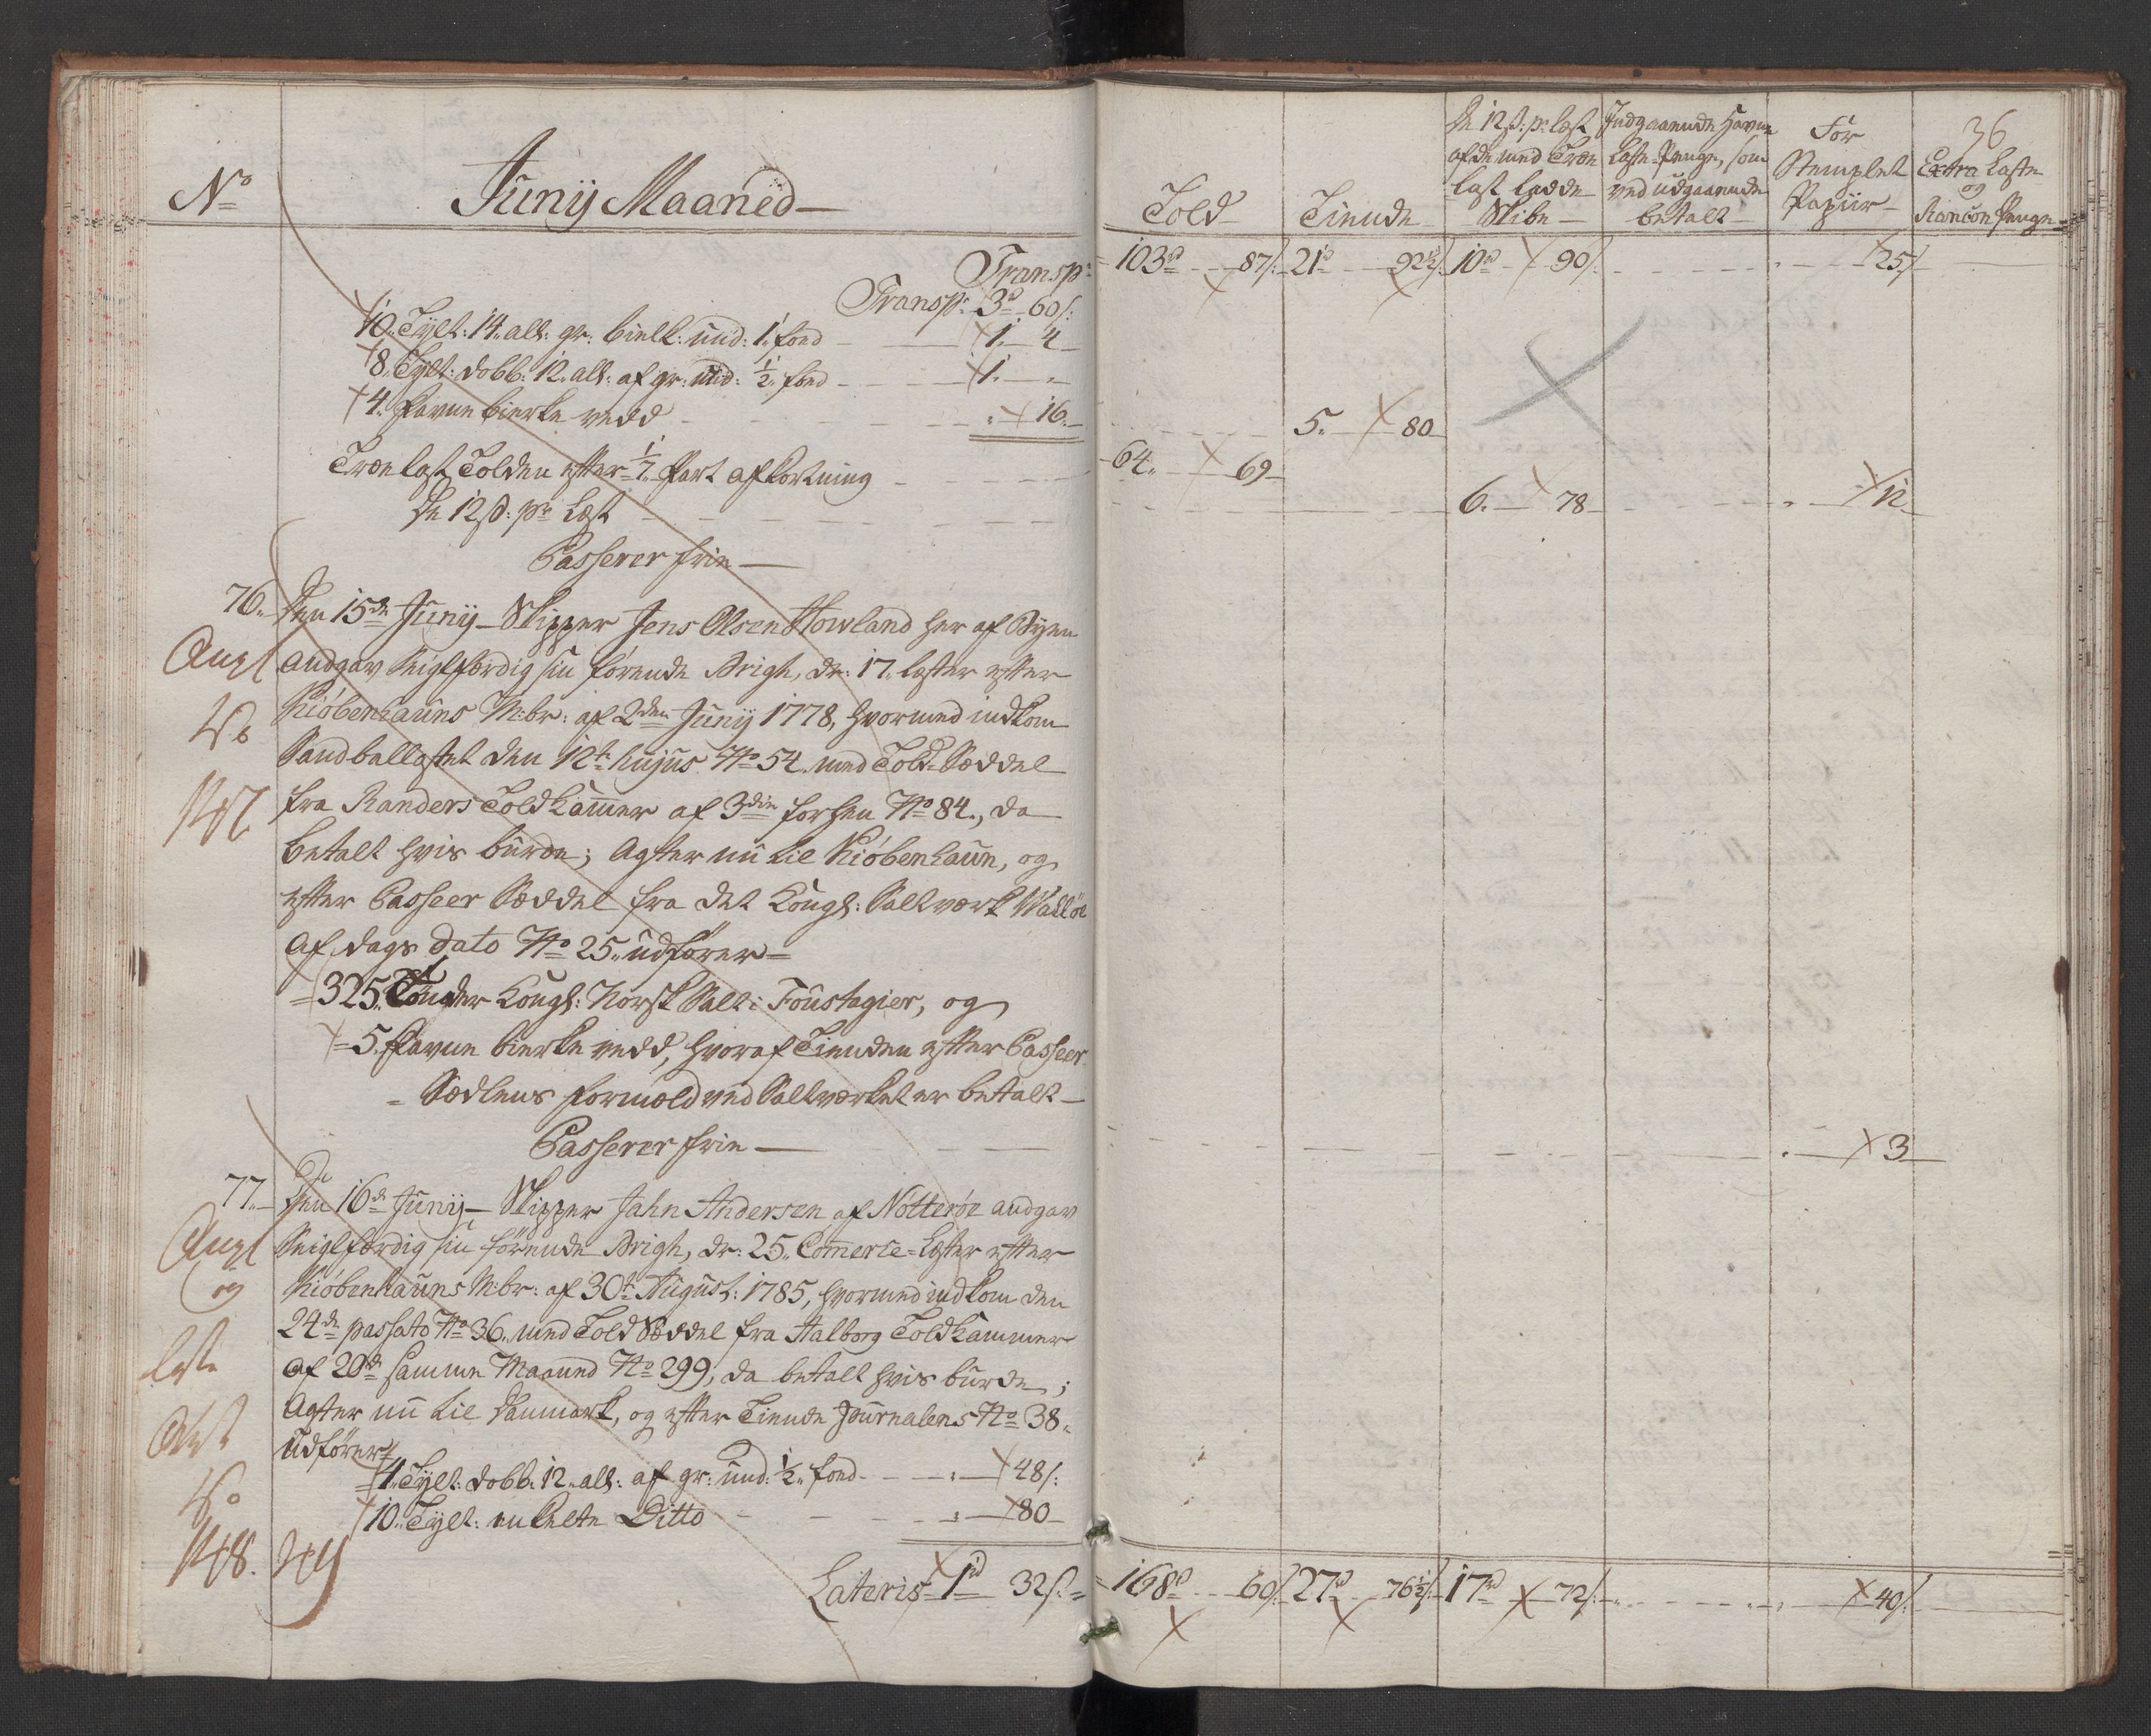 No
Junij Maaned
Transp:
Transp: 3 rd 60 s:
10 Tylt: 14 all: gr: bielk: und: 1 food 1 4
8 Tylt: dobb: 12 all: af gr: und: 1/2 food 1 "
4 Favne bierke vedd " 16
Træelast Tolden efter 1/7 Part afkortning
De 12 s: pr Læst
Passerer frie
76. Den 15de Junij Skipper Jens Olsen Howland her af Byen
Angl andgav Seiglfærdig sin førende Brigh, dr: 17 læster efter
Kiøbenhauns M:br: af 2den Junij 1778, hvormed indkom
Sandballastet den 12te hujus No 54 med Told-Sæddel
fra Randers Toldkammer af 3die forhen No 84, da
147
betalt hvis burde; Agter nu til Kiøbenhaun, og
efter Passeer Sæddel fra det Kongl: Saltværk Walløe
af dags dato No 25 udfører
325 Tønder Kongl: Norsk Salt i Foustagier, og
5 Favne bierke vedd, hvoraf Tienden efter Passeer
Sædlens formæld ved Saltværket er betalt
Passerer frie
77. Den 16de Junij Skipper Jahn Andersen af Nøtterøe andgav
Angl Seiglfærdig sin førende Brigh, dr: 25 Commerce-Læster efter
og Kiøbenhauns M:br: af 30te August: 1785, hvormed indkom den
24de passato No 36 med Told Sæddel fra Aalborg Toldkammer
af 20de samme Maaned No 299, da betalt hvis burde;
Agter nu til Danmark, og efter Tiende Journalens No 38
udfører
4 Tylt: dobb: 12 all: af gr: und: 1/2 food " 48 s:
10 Tylt: enkelte Ditto " 80
148.
Lateris 1 rd 32 s:
36
Told
Tiende
De 12 s: pr læst af de med Træe last ladde Skibe
Indgaaende Havne Laste-Penge, som ved udgaaende betalt
For Stemplet Papiir
Extra Laste og Rançon Penge
103 rd 87 s: 21 rd 92 1/2 s: 10 rd 90 s: 25 s
5. 80
64. 69
6. 78 " 12
" 3
168 rd 60 s: 27 rd 76 1/2 s: 17 rd 72 s: 40 s: